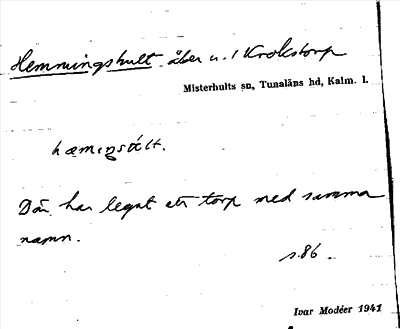 Hemmingshult åker u. / Krokstorp
Misterhults sn, Tunaläns hd, Kalm. l.
hæmiŋsúlt.
Där har legat ett torp med samma
namn.
s. 86.
Ivar Modéer 1941